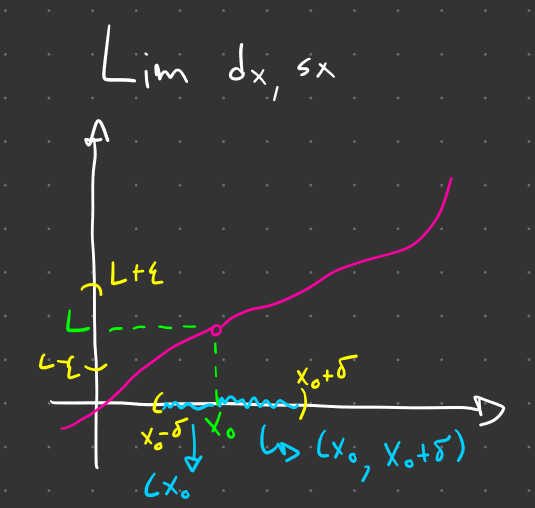 Lim dx, sx
L+ε
L
L-ε
x₀+δ
x₀-δ
x₀
(x₀, x₀+δ)
(x₀